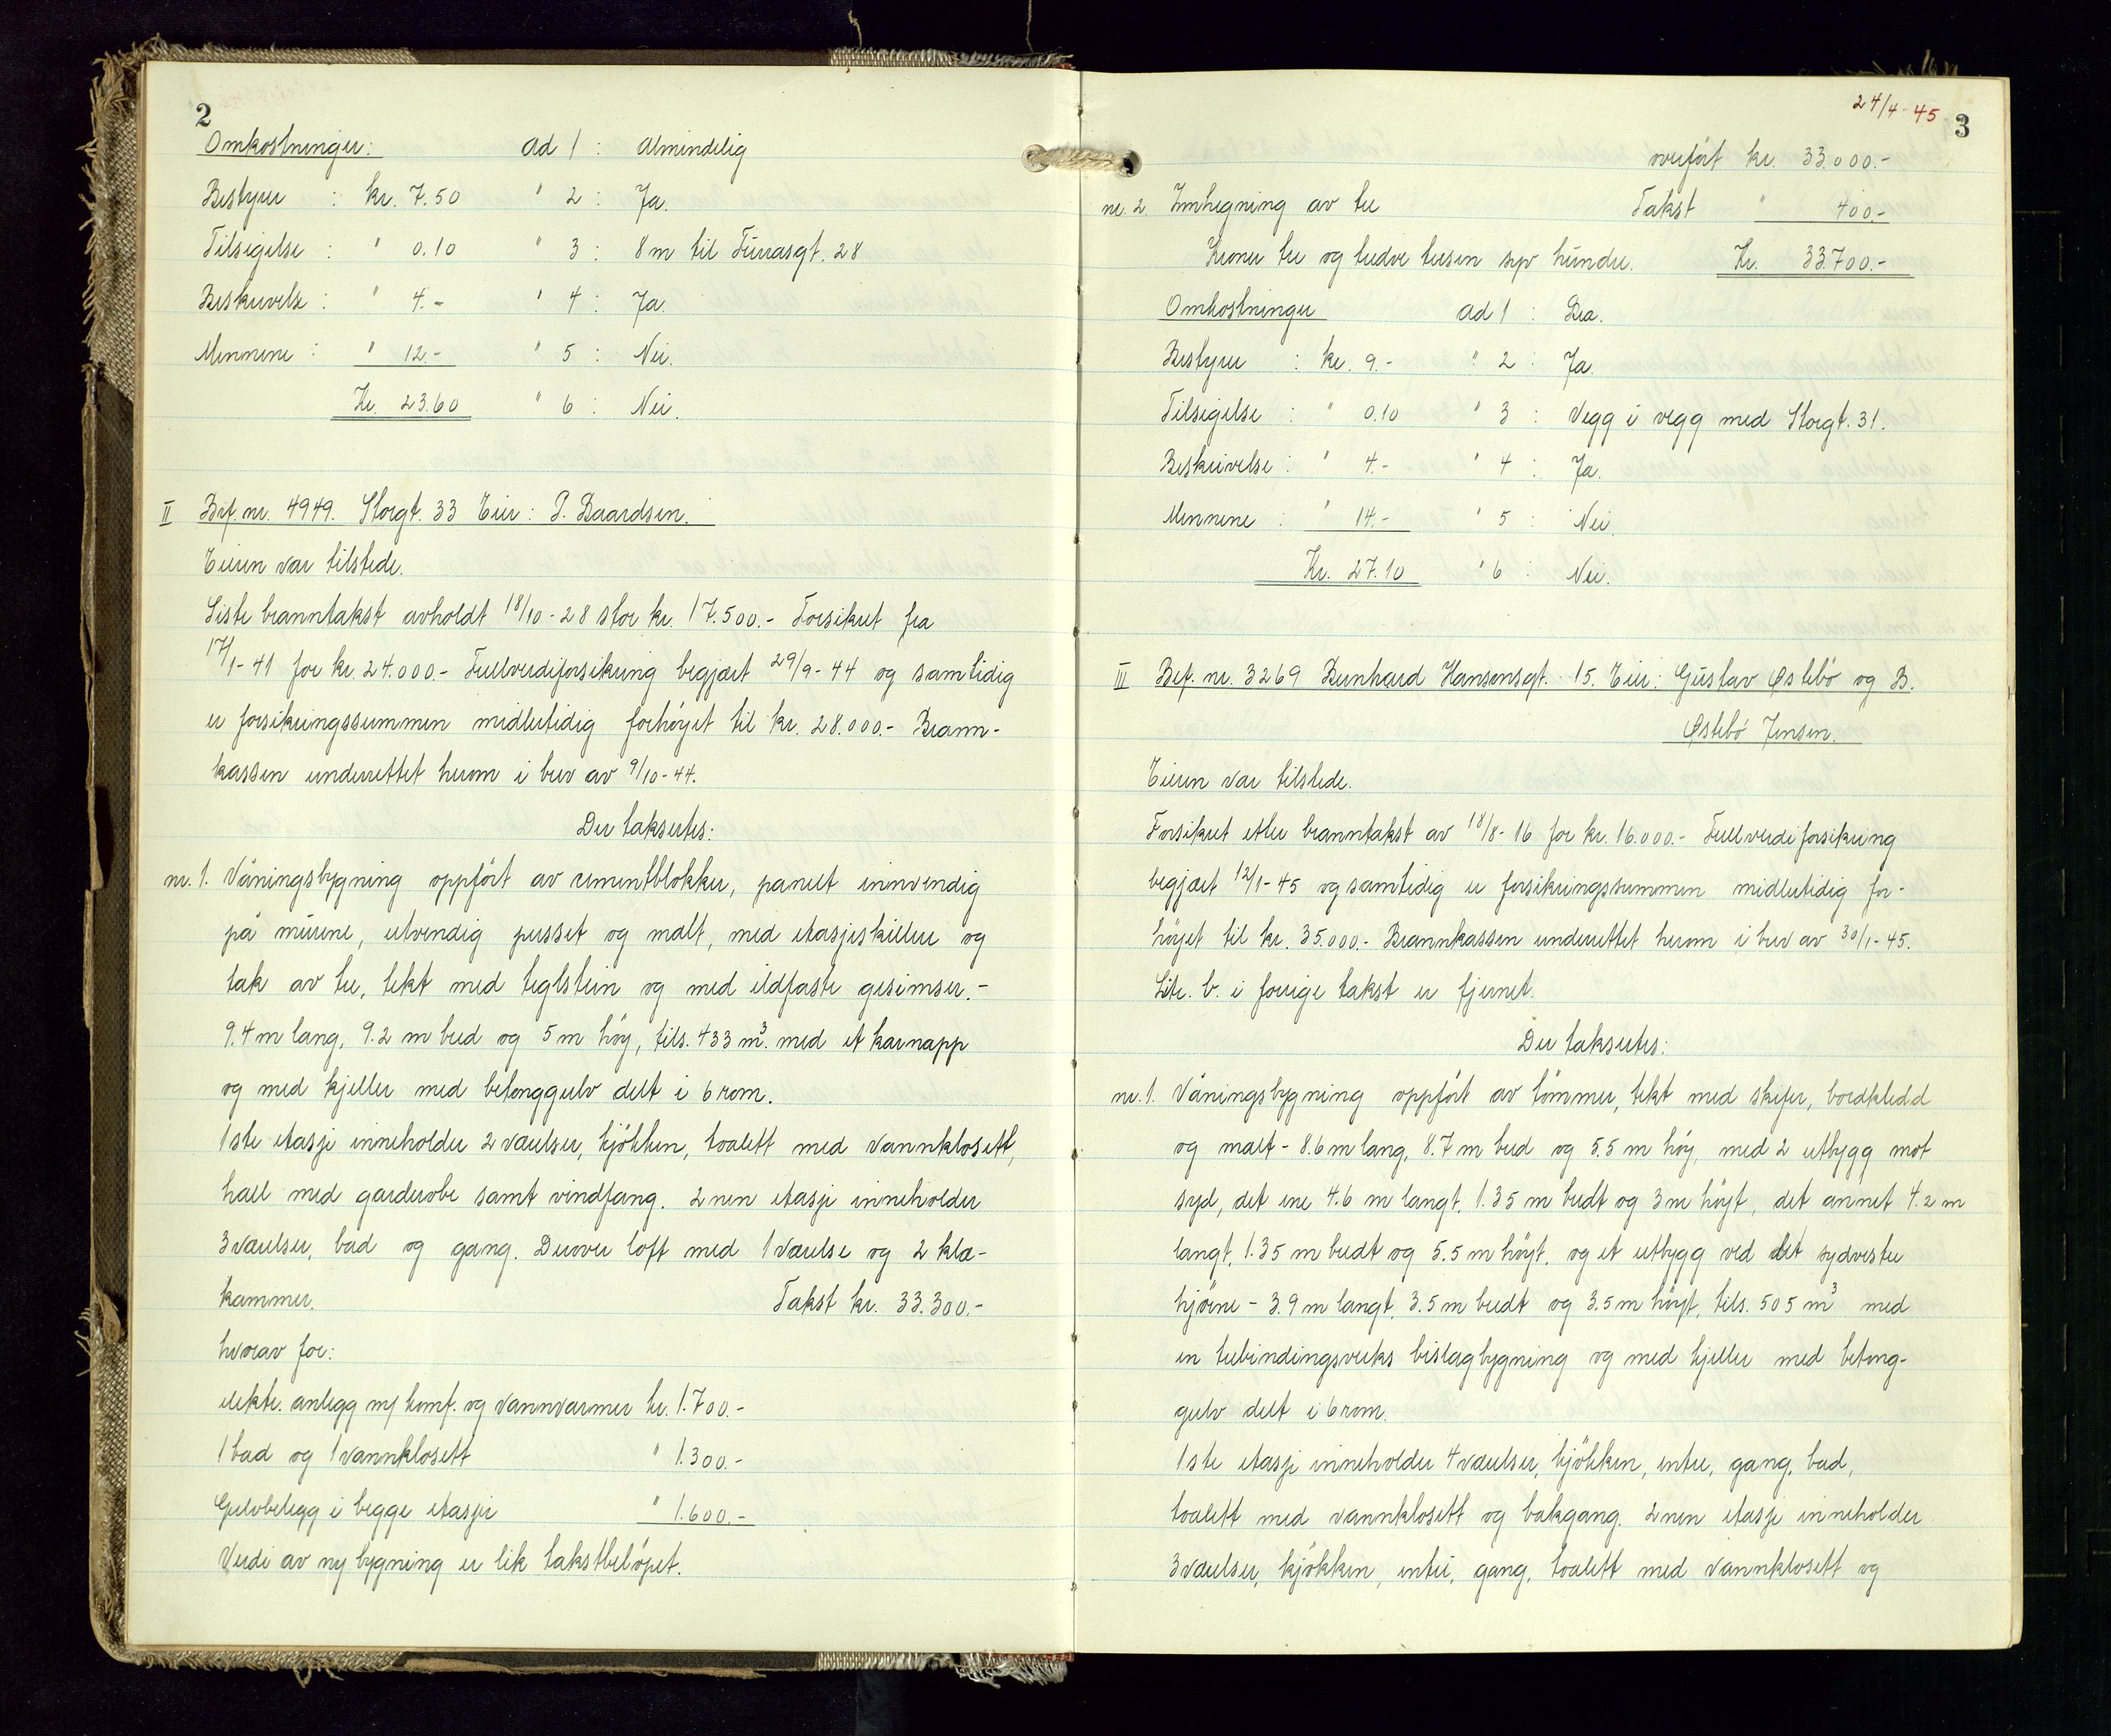 2
Omkostninger: ad 1 : Almindelig
Bestyrer : kr. 7.50 " 2 : Ja.
Tilsigelse : " 0.10 " 3 : 8 m til Furrasgt. 28
Beskrivelse : " 4.- " 4 : Ja.
Mennene : " 12.- " 5 : Nei.
Kr. 23.60 " 6 : Nei.
II Bef. nr. 4949. Storgt. 33 Eier: P. Baardsen.
Eieren var tilstede.
Siste branntakst avholdt 18/10-28 stor kr. 17.500.- Forsikret fra
17/1-41 for kr. 24.000.- Fullverdiforsikring begjært 29/9-44 og samtidig
er forsikringssummen midlertidig forhöyet til kr. 28.000.- Brann-
kassen underrettet herom i brev av 9/10-44.
Der taksertes:
nr. 1. Våningsbygning oppfört av cementblokker, panelt innvendig
på murene, utvendig pusset og malt, med etasjeskillere og
tak av tre, tekt med teglstein og med ildfaste gesimser.-
9.4 m lang, 9.2 m bred og 5 m höy, tils. 433 m³. med et karnapp
og med kjeller med betonggulv delt i 6 rom.
1ste etasje inneholder 2 værelser, kjökken, toalett med vannklosett,
hall med garderobe samt vindfang. 2nen etasje inneholder
3 værelser, bad og gang. Derover loft med 1 værelse og 2 kle-
kammer. Takst kr. 33.300.-
hvorav for:
elektr. anlegg m/ komf. og vannvarmer kr. 1.700.-
1 bad og 1 vannklosett " 1.300.-
Gulvbelegg i begge etasjer " 1.600.-
Verdi av ny bygning er lik takstbelöpet.
24/4-45
3
overfört kr. 33.000.-
nr. 2. Innhegning av tre Takst " 400.-
Kroner tre og tredve tusen syv hundre. Kr. 33.700.-
Omkostninger ad 1 : Bra.
Bestyrer : kr. 9.- " 2 : Ja.
Tilsigelse : " 0.10 " 3 : Vegg i vegg med Storgt. 31.
Beskrivelse : " 4.- " 4 : Ja.
Mennene : " 14.- " 5 : Nei.
Kr. 27.10 " 6 : Nei.
III Bef. nr. 3269 Bernhard Hansensgt. 15. Eier: Gustav Østebö og B.
Østebö Jensen.
Eieren var tilstede.
Forsikret etter branntakst av 18/8-16 for kr. 16.000.- Fullverdiforsikring
begjært 12/1-45 og samtidig er forsikringssummen midlertidig for-
höyet til kr. 35.000.- Brannkassen underrettet herom i brev av 30/1-45.
Litr. b. i forrige takst er fjernet.
Der taksertes:
nr. 1. Våningsbygning oppfört av tömmer, tekt med skifer, bordkledd
og malt - 8.6 m lang, 8.7 m bred og 5.5 m höy, med 2 utbygg mot
syd, det ene 4.6 m langt, 1.35 m bredt og 3 m höyt, det annet 4.2 m
langt, 1.35 m bredt og 5.5 m höyt, og et utbygg ved det sydvestre
hjörne - 3.9 m langt, 3.5 m bredt og 3.5 m höyt, tils. 505 m³ med
en trebindingsverks bislagbygning og med kjeller med betong-
gulv delt i 6 rom.
1ste etasje inneholder 4 værelser, kjökken, entre, gang, bad,
toalett med vannklosett og bakgang. 2nen etasje inneholder
3 værelser, kjökken, entré, gang, toalett med vannklosett og